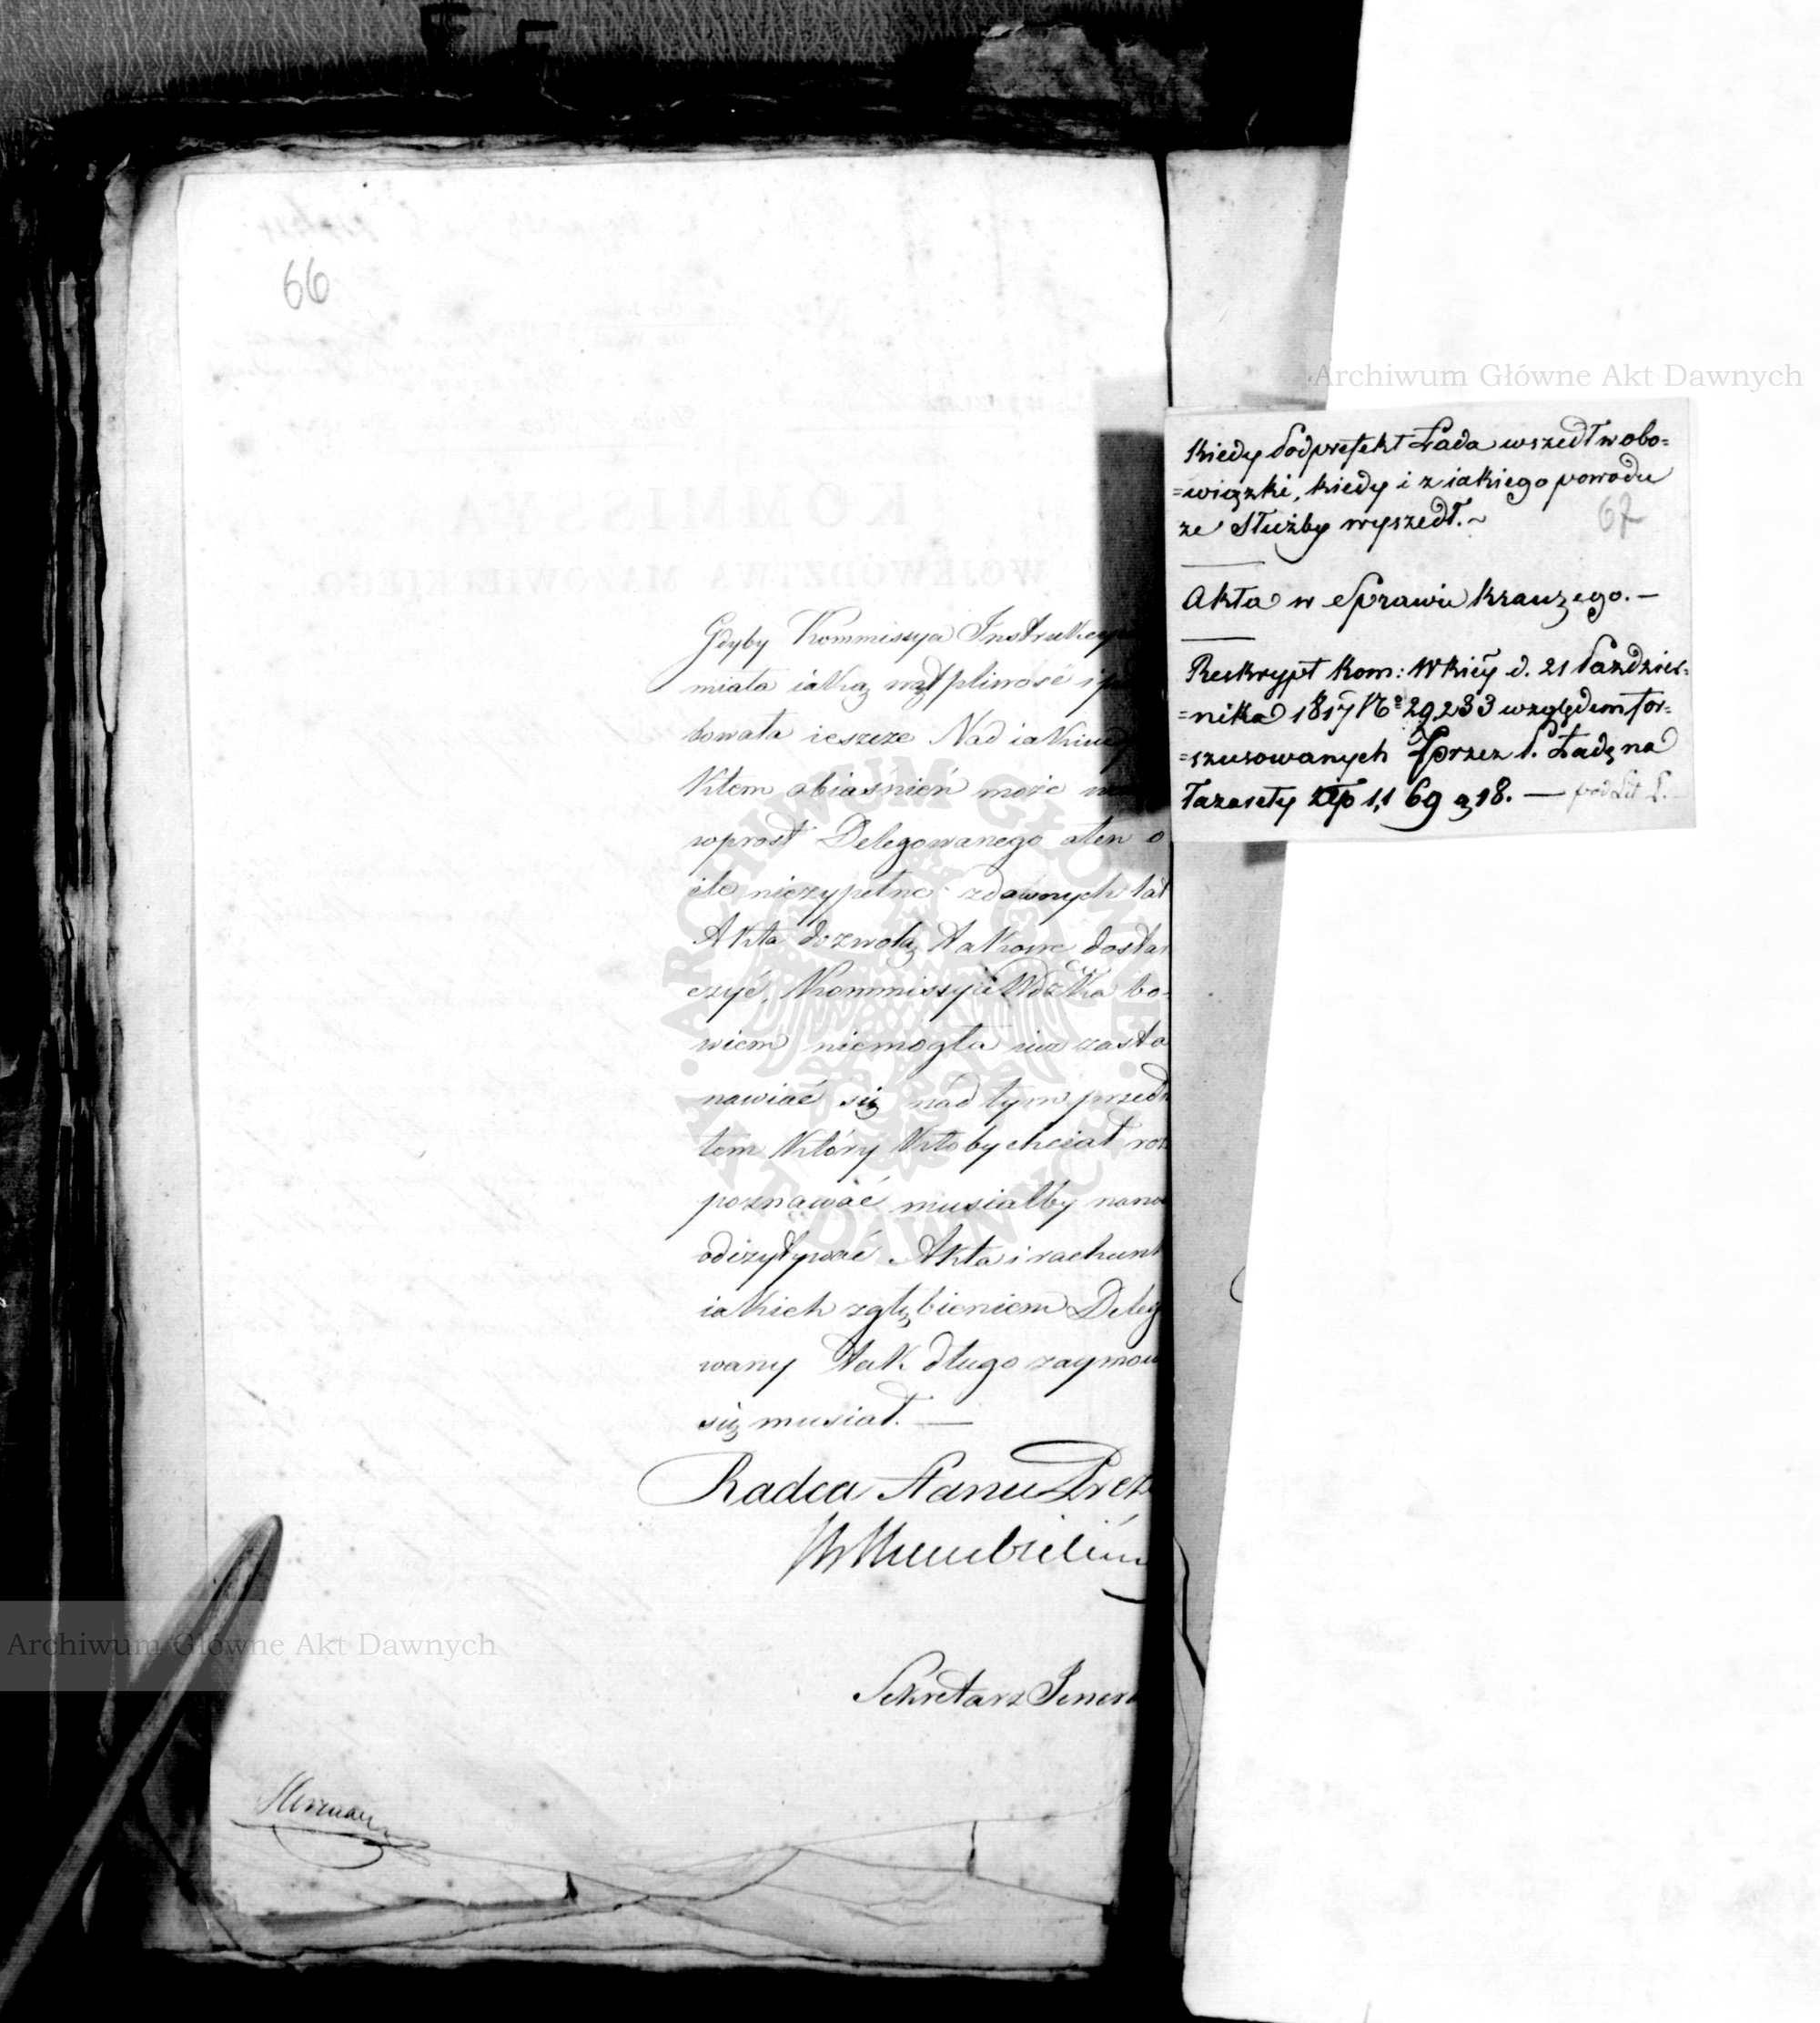 66
Gdyby Kommissya Instrukcy
miała iaką wątpliwość i p
bowała ieszcze Nad iakim
ktem obiaśnień może
wprost Delegowanego aten o
ile niezupełne zdawnych lat
Akta dozwolą takowe dostar
czyć, Kommissyia Wdzka bo-
wiem niemogła iuż zasta
nawiać się nad tym przedm
tem który ktoby chciał roz
poznawać musiałby nano
odczytywać Akta i rachunk
iakich zgłębieniem Deleg
wany tak długo zaymow
się musiał. —
Radca Stanu Prez
Sekretarz Jener
Kiedy Podprefekt Łada wszedł w obo=
=wiązki, kiedy i z iakiego powodu
ze Służby wyszedł.~
67
Akta w Sprawie Krauzego. —
Reskrypt Kom: Wkiéy d. 21 Paździer=
=nika 1817 No 29,233 względem for=
=szusowanych przez P. Ładę na
Łazarety złp 1,169 g 18. — pod Lit L.
KOMMISSYA
WOJEWÓDZTWA MAZOWIECKIEGO
Archiwum Główne Akt Dawnych
Archiwum Główne Akt Dawnych
ARCHIWUM GŁÓWNE · AKT DAWNYCH ·